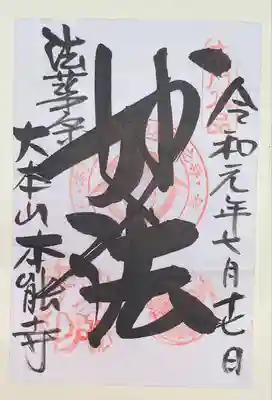 令和元年七月十七日
妙法
法華宗
大本山本能寺